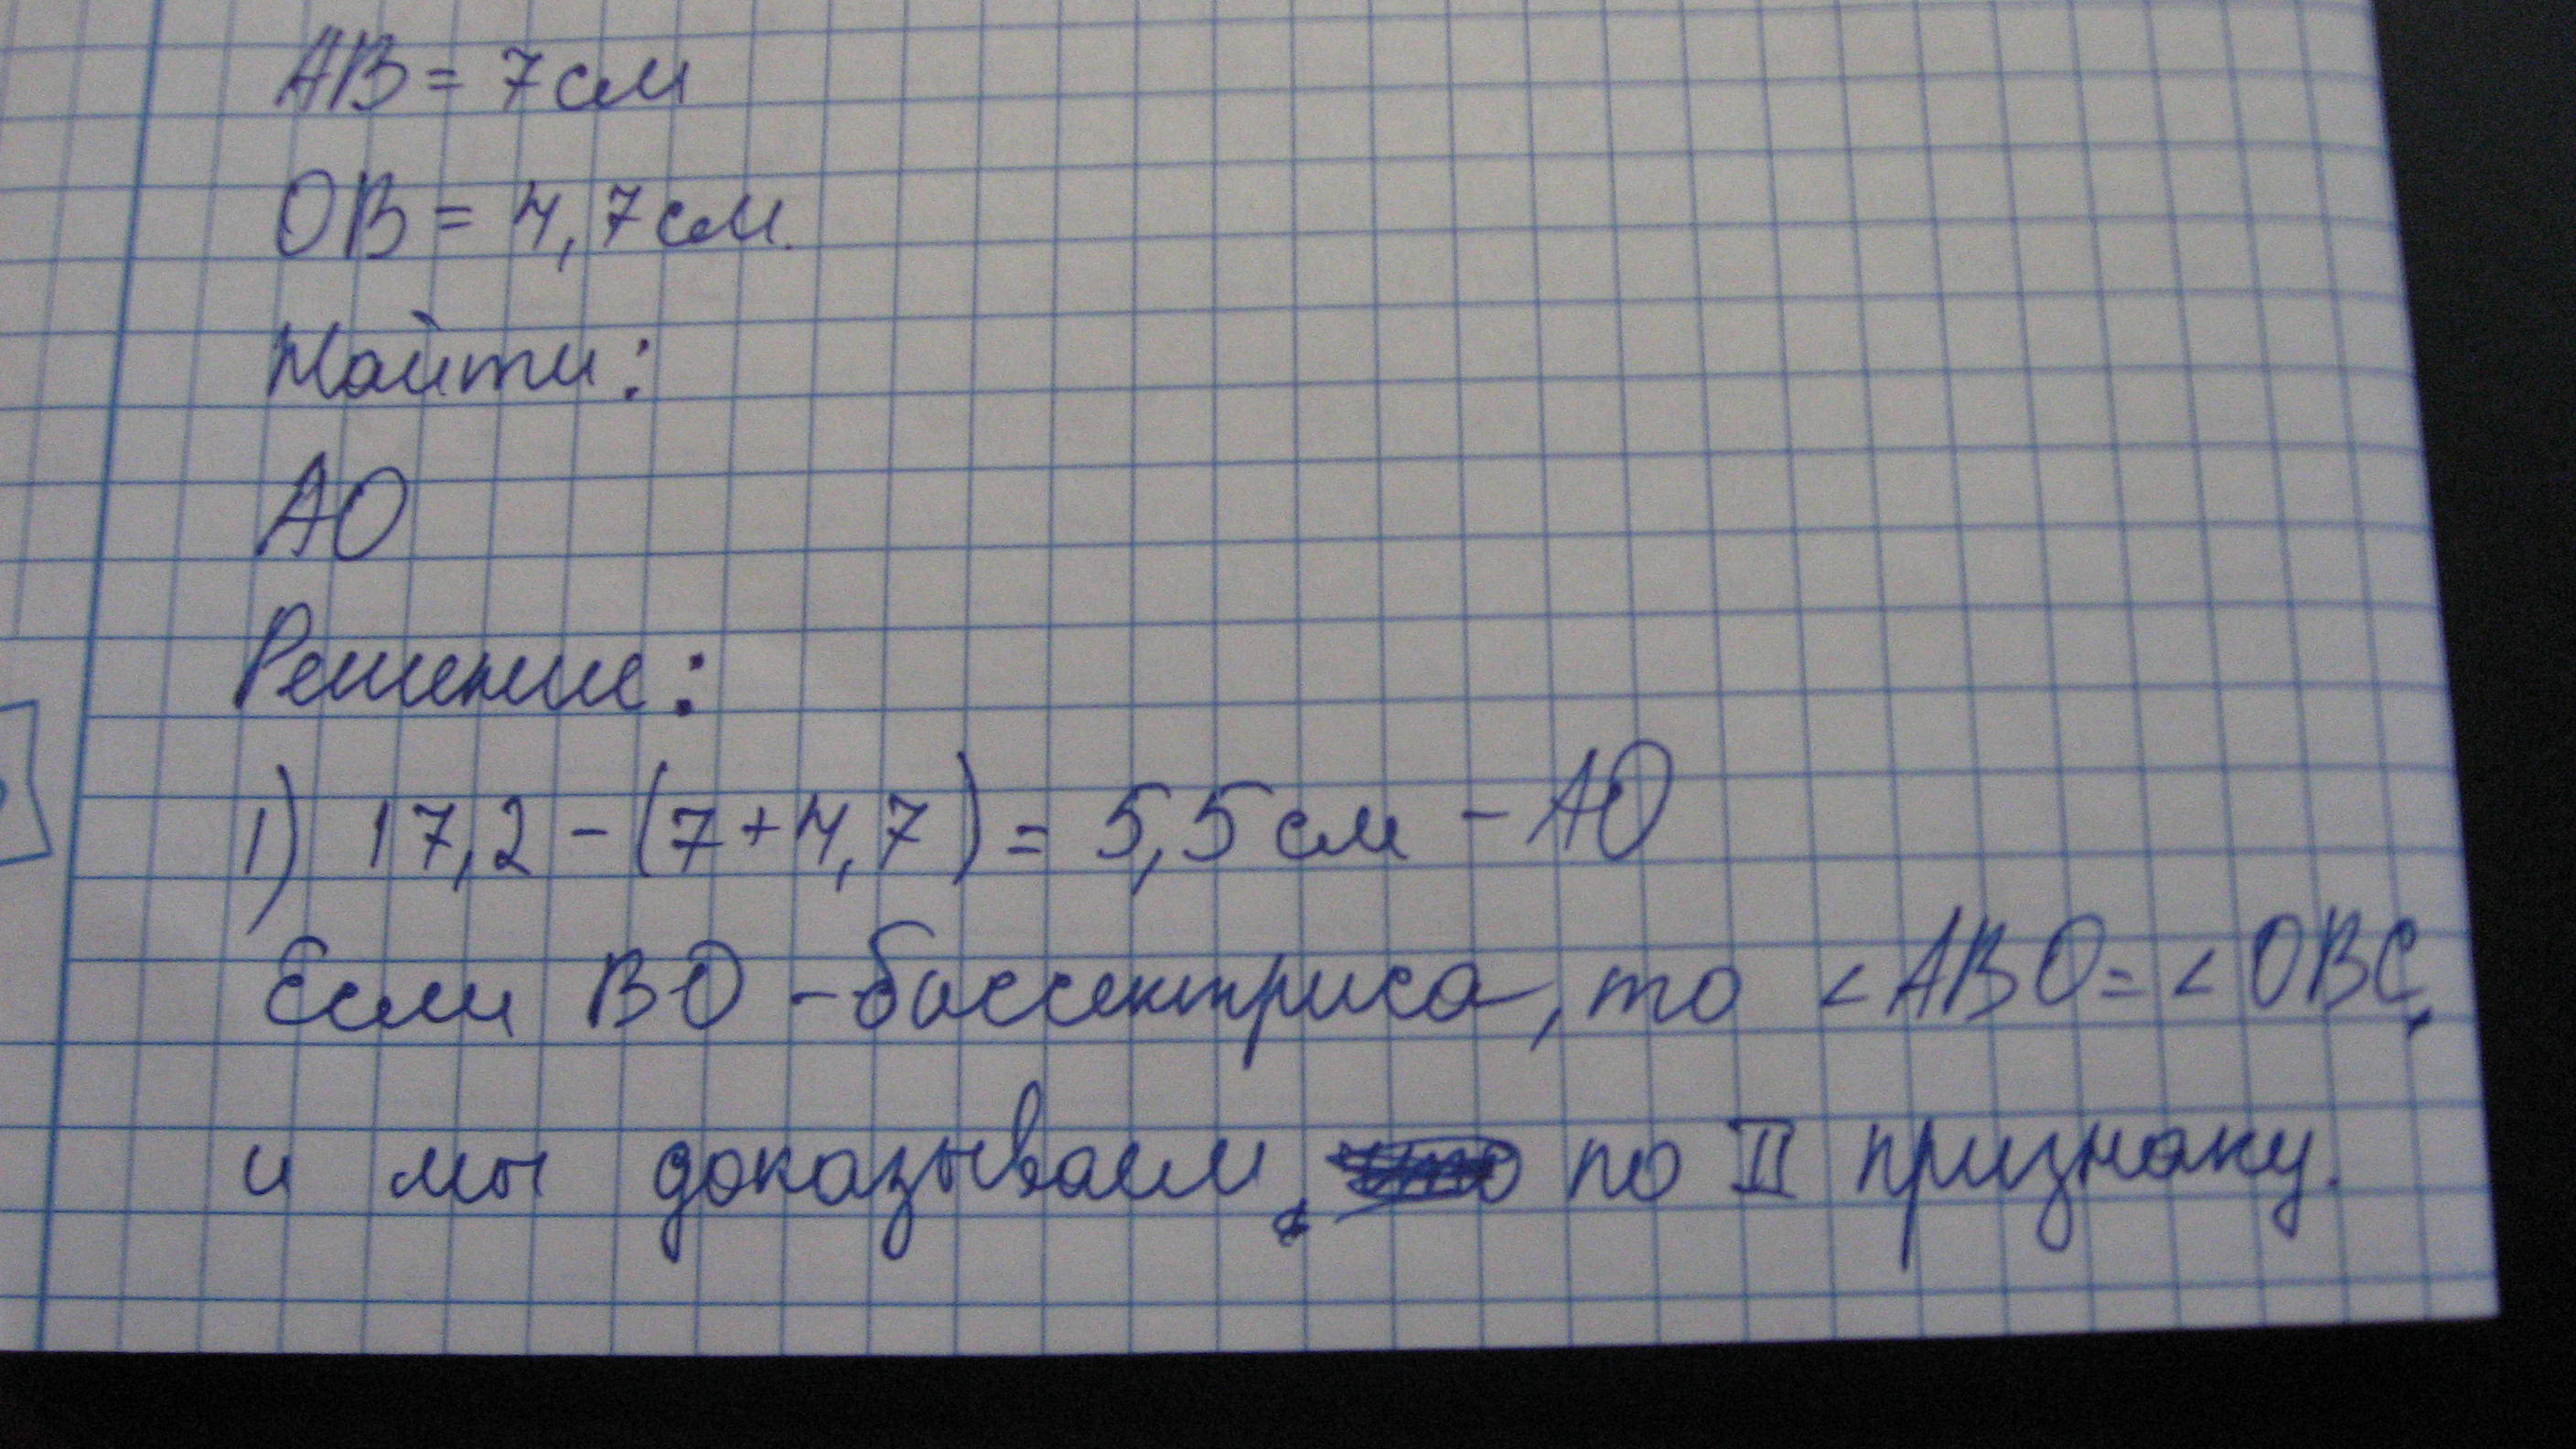 AB = 7 см
OB = 4,7 см.
Найти:
AO
Решение:
1) 17,2 - (7 + 4,7) = 5,5 см - AO
Если BO - бассектриса, то < ABO = < OBC,
и мы доказываем, по II признаку.